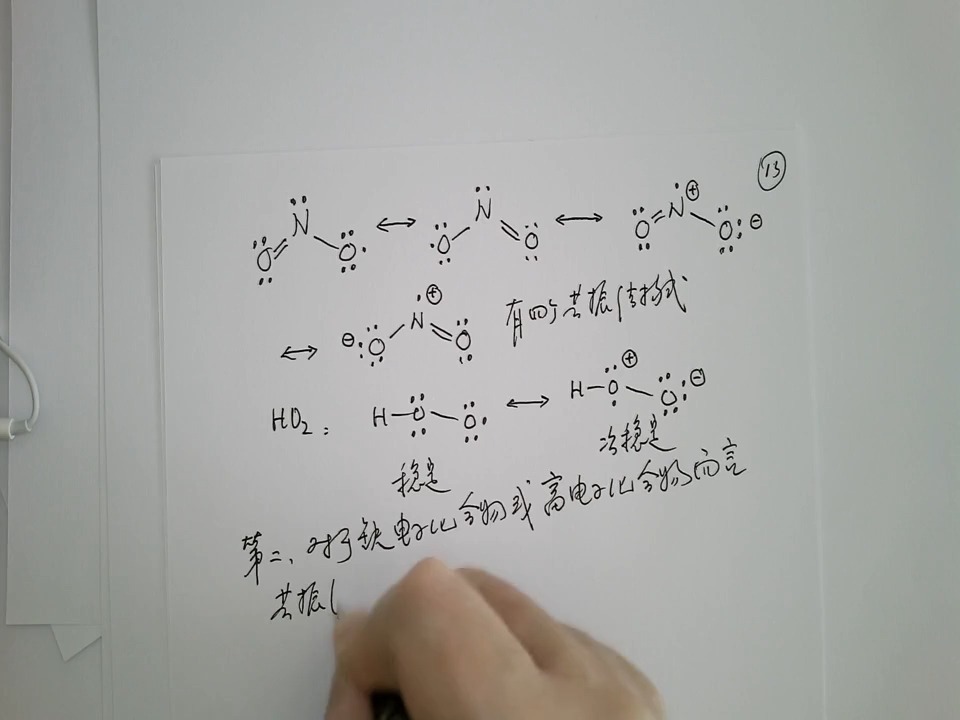 13
N O O ↔ N O O ↔ N⊕ O O ⊖
有四个共振结构式
↔ ⊖ O N⊕ O
HO₂: H-O-O ↔ H-O⊕-O ⊖
稳定 次稳定
第二、对于缺电子化合物或富电子化合物而言
共振